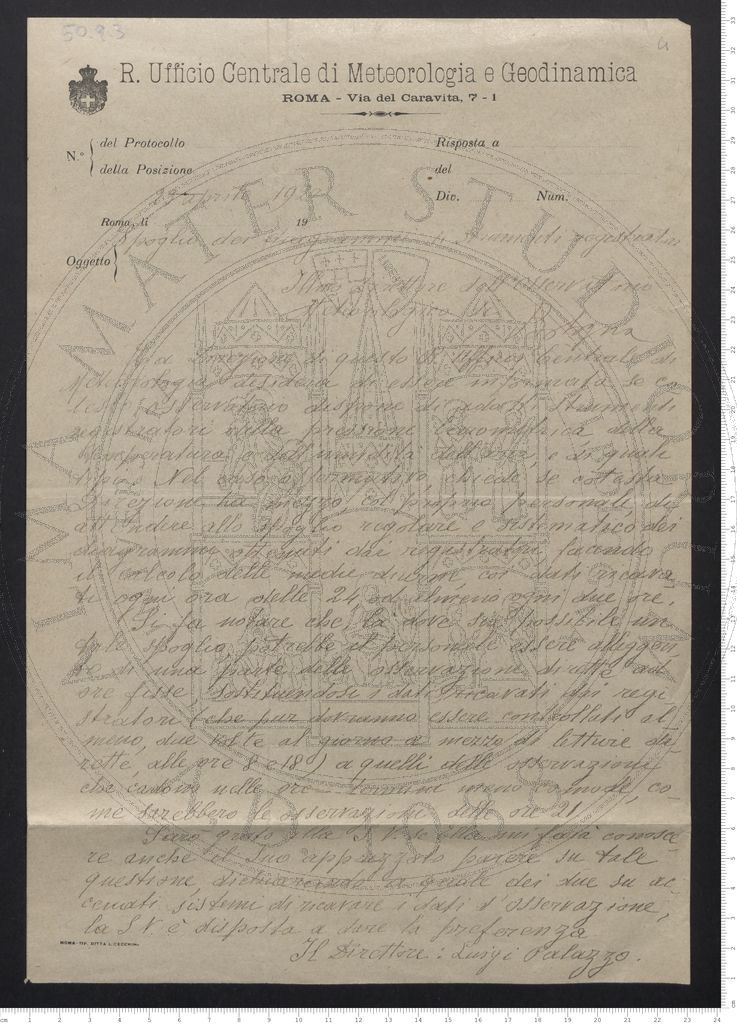 50.9.3
4
R. Ufficio Centrale di Meteorologia e Geodinamica
ROMA - Via del Caravita, 7 - 1
N.° del Protocollo
della Posizione
Risposta a
del
Div. Num.
aprile
Roma, li 19
Oggetto
Spoglio dei diagrammi strumenti registratori
Direttore dell'Osservatorio
Bologna
La Direzione di questo R. Ufficio Centrale di
Meteorologia desidera di essere informata se co-
testo Osservatorio dispone di adatti strumenti
registratori della pressione barometrica della
temperatura e dell'umidità dell'aria, e di quale
tipo. Nel caso affermativo, chiede se cotesta
Direzione ha mezzo, col proprio personale, di
attendere allo spoglio regolare e sistematico dei
diagrammi ottenuti dai registratori facendo
il calcolo delle medie diurne coi dati ricava-
ti ogni ora delle 24 od almeno ogni due ore.
Si fa notare che, là dove sia possibile un
tale spoglio potrebbe il personale essere allegeri-
to di una parte delle osservazione dirette ad
ore fisse sostituendosi i dati ricavati dai regi
stratori (che pur dovranno essere controllati al
meno, due volte al giorno a mezzo di letture di-
rette, alle ore 8 e 18) a quelli delle osservazioni
che cadono nelle ore termini meno comode, co-
me sarebbero le osservazioni delle ore 21.
Sarò grato alla S. V. se ella mi farà conosce-
re anche il suo apprezzato parere su tale
questione, dichiarando a quale dei due su ac-
cennati sistemi di ricavare i dati d'osservazione,
la S. V. è disposta a dare la preferenza
Il Direttore: Luigi Palazzo.
ROMA - TIP. DITTA L. CECCHINI
ALMA MATER STUDIORUM
A.D. 1088